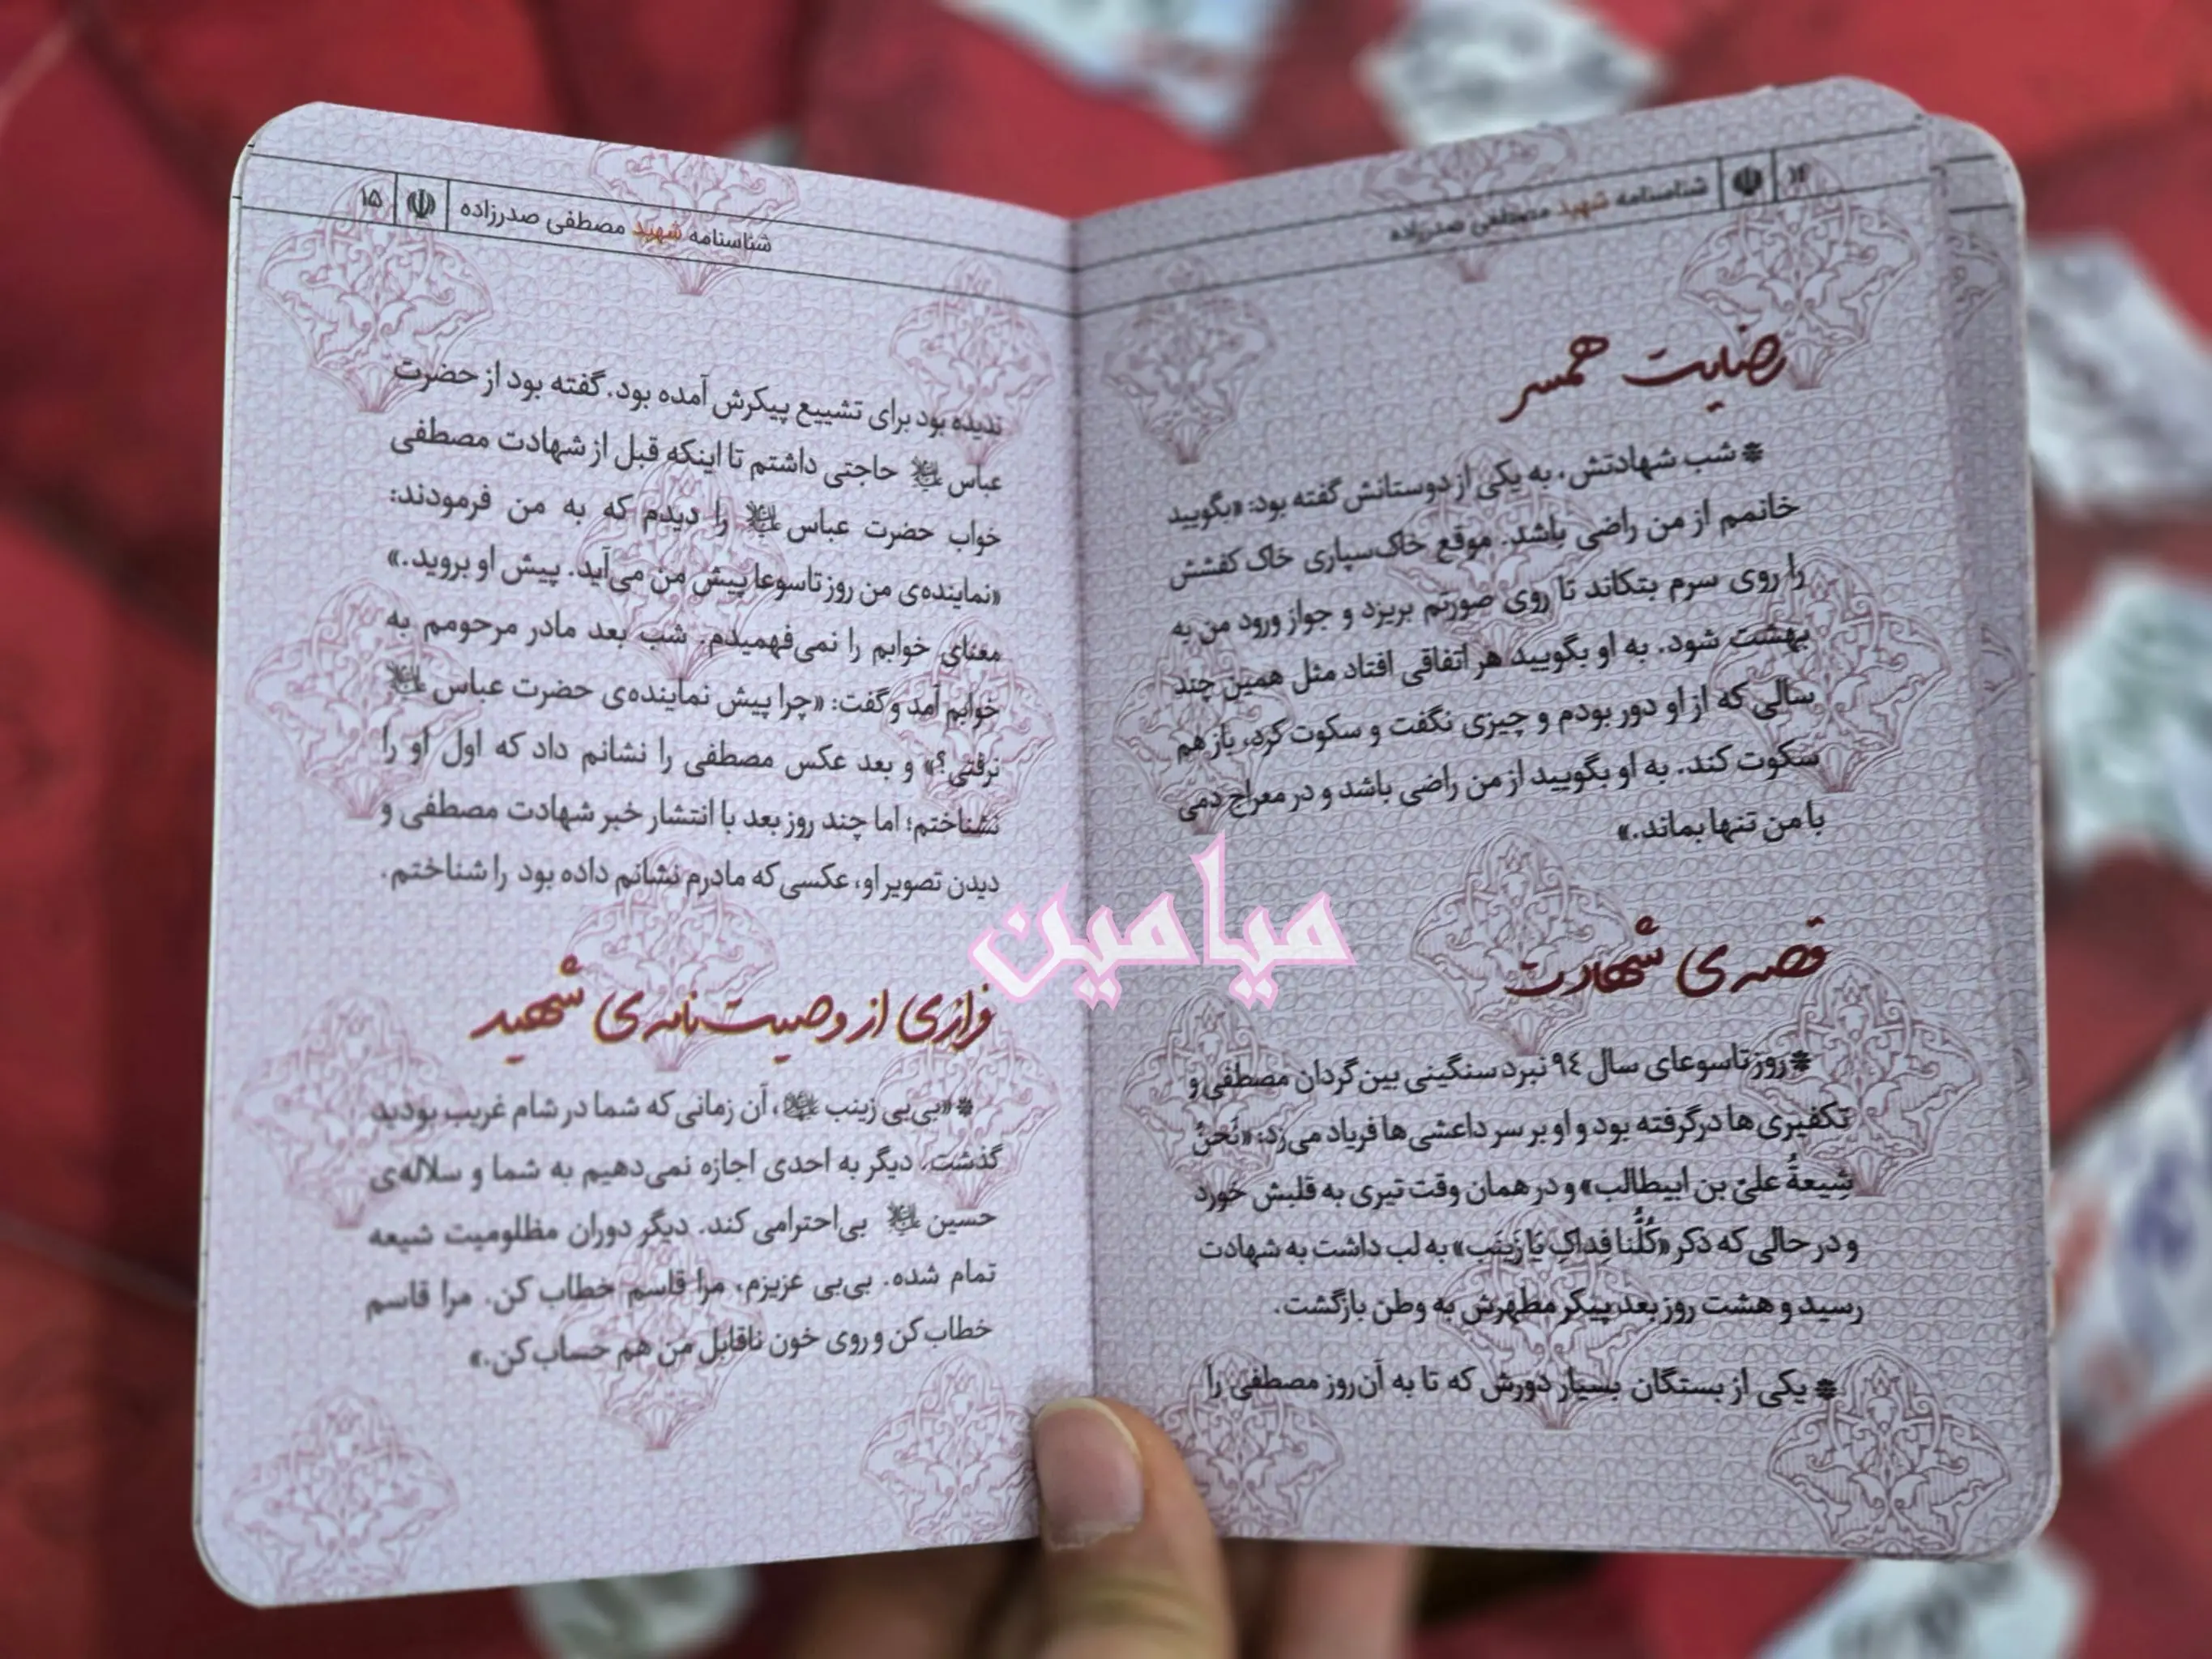 ۱۴ شناسنامه شهید مصطفی صدرزاده
رضایت همسر
* شب شهادتش، به یکی از دوستانش گفته بود: «بگویید
خانمم از من راضی باشد. موقع خاک‌سپاری خاک کفشش
را روی سرم بتکاند تا روی صورتم بریزد و جواز ورود من به
بهشت شود. به او بگویید هر اتفاقی افتاد مثل همین چند
سالی که از او دور بودم و چیزی نگفت و سکوت کرد، باز هم
سکوت کند. به او بگویید از من راضی باشد و در معراج دمی
با من تنها بماند.»
قصه‌ی شهادت
* روز تاسوعای سال ۹٤ نبرد سنگینی بین گردان مصطفی و
تکفیری ها درگرفته بود و او بر سر داعشی ها فریاد می‌زد: «نَحنُ
شِیعةُ علیّ بن ابیطالب» و در همان وقت تیری به قلبش خورد
و در حالی که ذکر «کُلُّنا فِداکِ یَا زَینَب» به لب داشت به شهادت
رسید و هشت روز بعد پیکر مطهرش به وطن بازگشت.
* یکی از بستگان بسیار دورش که تا به آن روز مصطفی را
شناسنامه شهید مصطفی صدرزاده ۱۵
ندیده بود برای تشییع پیکرش آمده بود. گفته بود از حضرت
عباس علیه‌السلام حاجتی داشتم تا اینکه قبل از شهادت مصطفی
خواب حضرت عباس علیه‌السلام را دیدم که به من فرمودند:
«نماینده‌ی من روز تاسوعا پیش من می‌آید. پیش او بروید.»
معنای خوابم را نمی‌فهمیدم. شب بعد مادر مرحومم به
خوابم آمد و گفت: «چرا پیش نماینده‌ی حضرت عباس علیه‌السلام
نرفتی؟» و بعد عکس مصطفی را نشانم داد که اول او را
نشناختم؛ اما چند روز بعد با انتشار خبر شهادت مصطفی و
دیدن تصویر او، عکسی که مادرم نشانم داده بود را شناختم.
فرازی از وصیت‌نامه‌ی شهید
* «بی‌بی زینب سلام‌الله‌علیها، آن زمانی که شما در شام غریب بودید
گذشت، دیگر به احدی اجازه نمی‌دهیم به شما و سلاله‌ی
حسین علیه‌السلام بی‌احترامی کند. دیگر دوران مظلومیت شیعه
تمام شده. بی‌بی عزیزم، مرا قاسم خطاب کن. مرا قاسم
خطاب کن و روی خون ناقابل من هم حساب کن.»
میامین